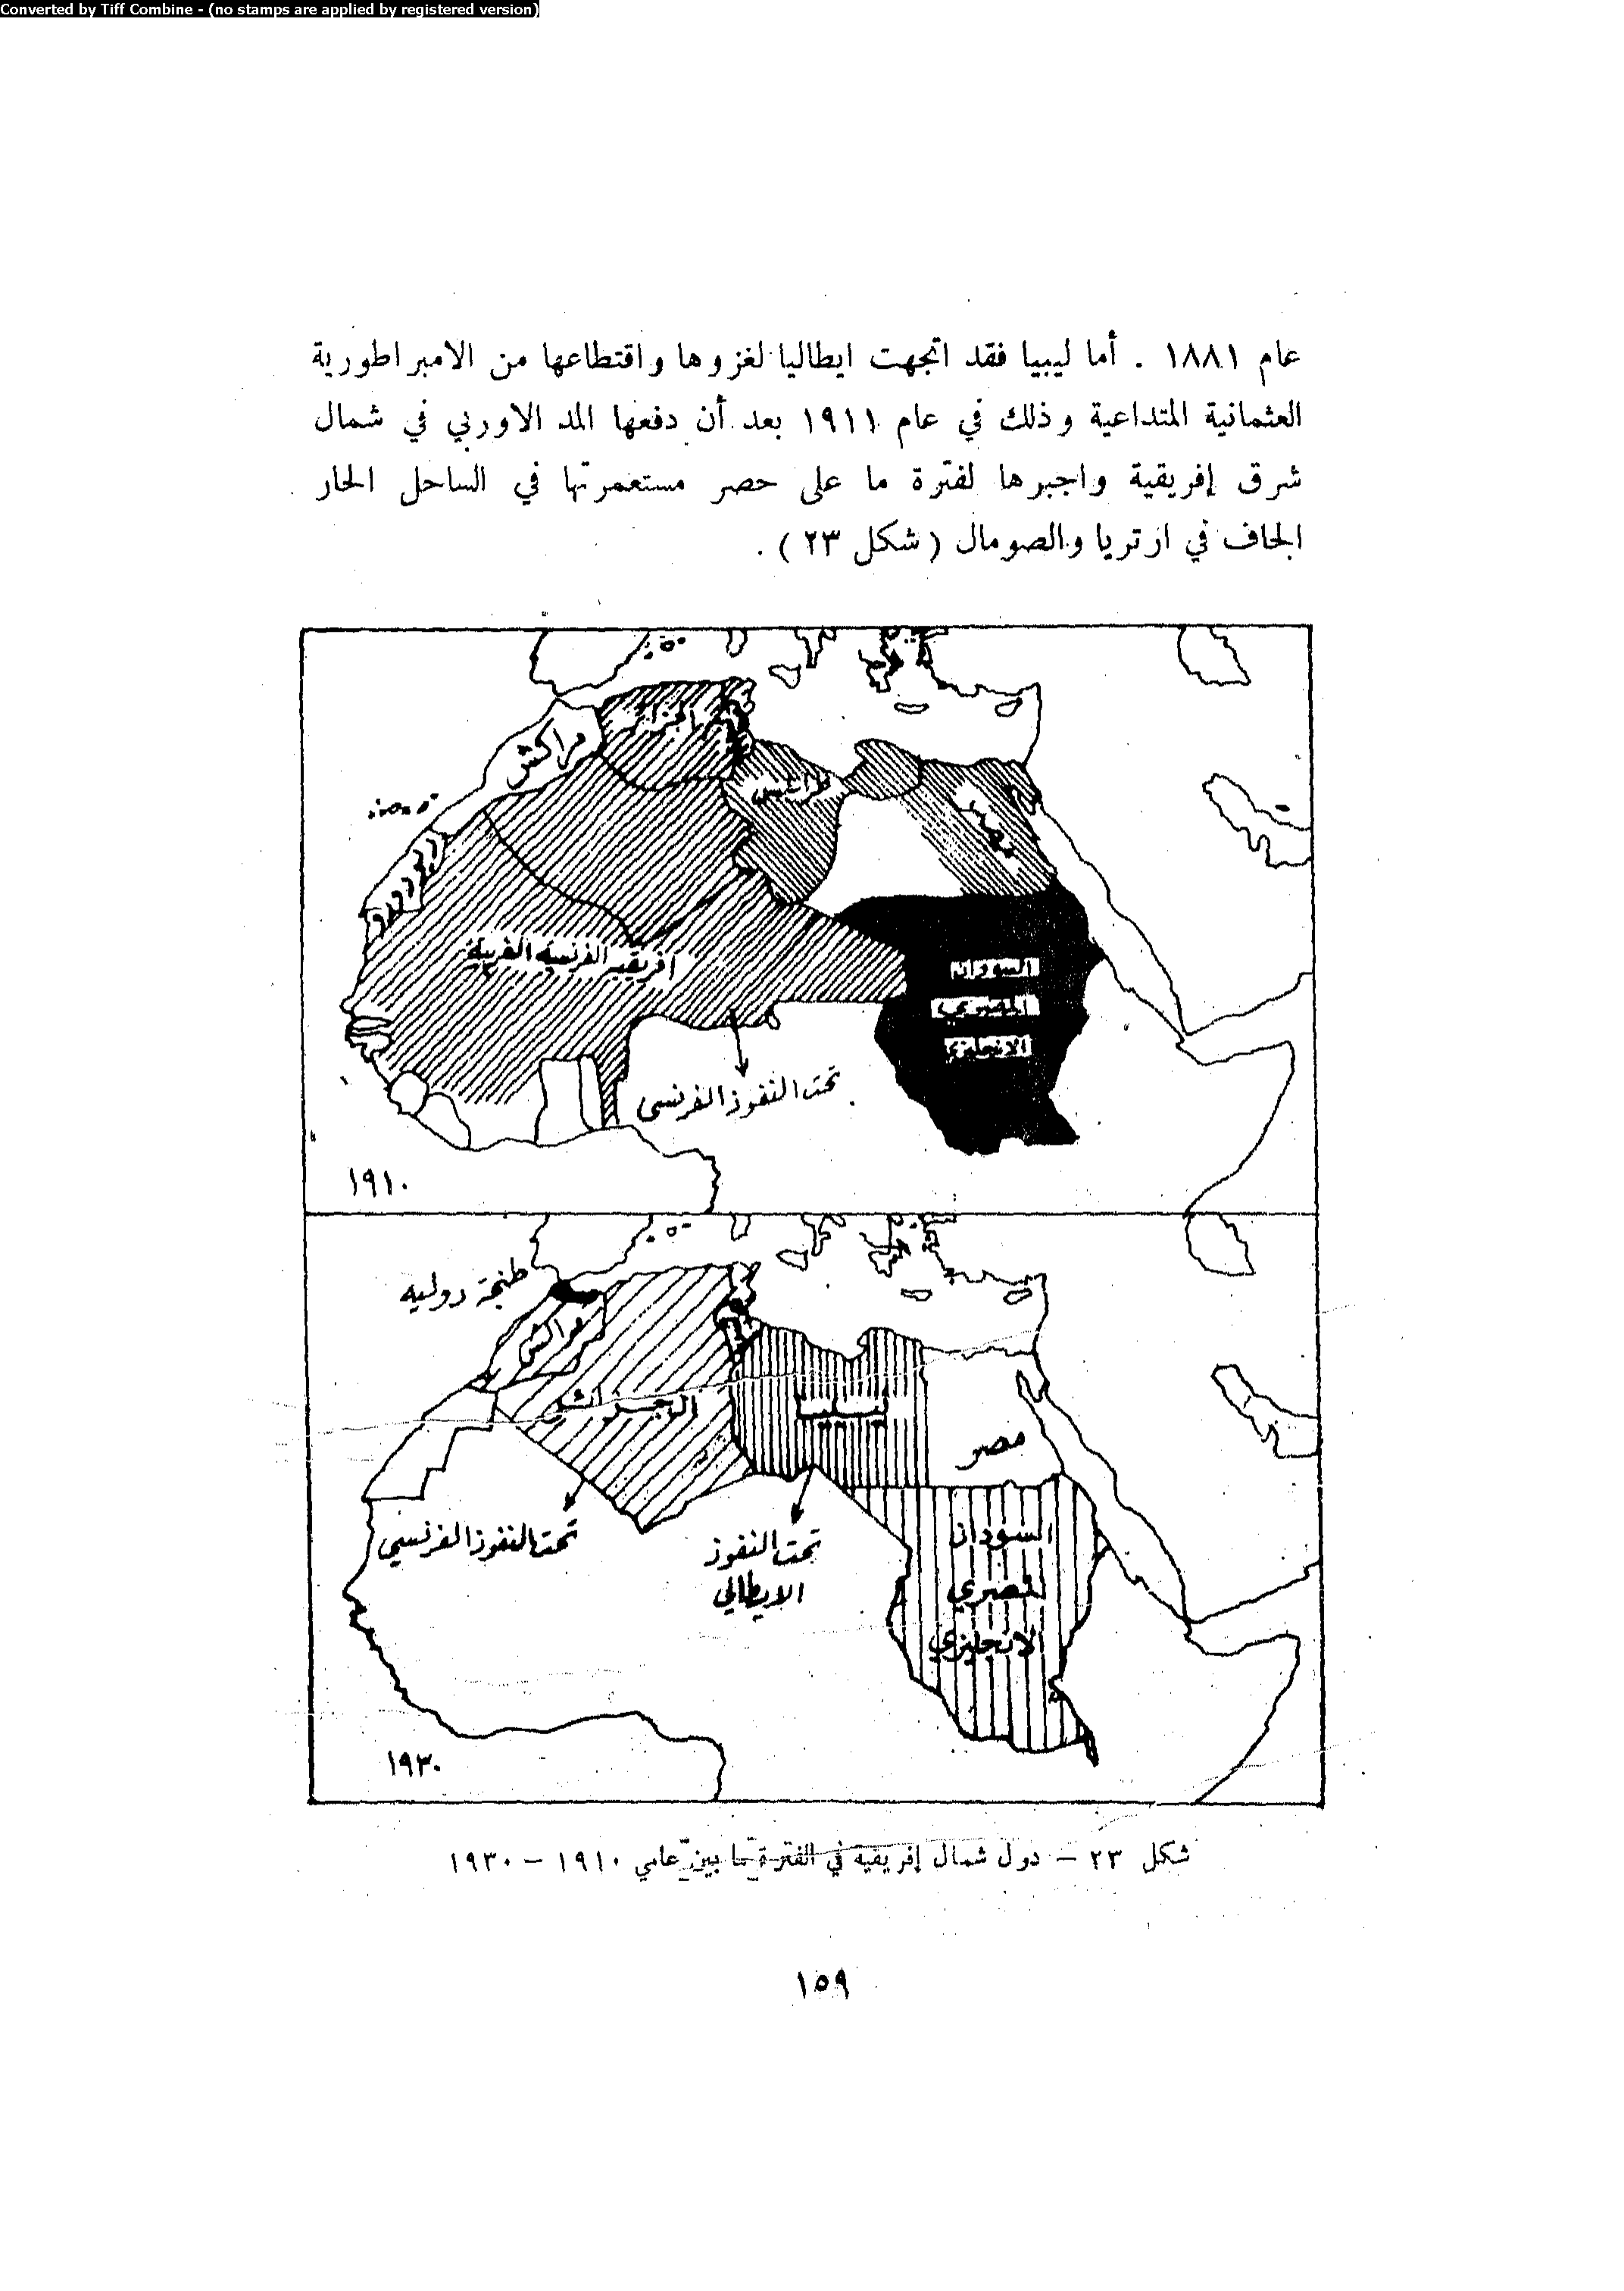 Converted by Tiff Combine - (no stamps are applied by registered version)
عام ١٨٨١ . أما ليبيا فقد اتجهت ايطاليا لغزوها واقتطاعها من الامبراطورية
العثمانية المتداعية وذلك في عام ١٩١١ بعد أن دفعها المد الاوربي في شمال
شرق إفريقية واجبرها لفترة ما على حصر مستعمرتها في الساحل الحار
الجاف في ارتريا والصومال ( شكل ٢٣ ) .
مراكش
طرابلس
مصر
افريقيه الفرنسيه الغربية
السودان
المصري
الانجليزي
تحت النفوذ الفرنسى
١٩١٠
طنجة دوليه
مراكش
الجزائر
ليبيا
مصر
تحت النفوذ الفرنسي
تحت النفوذ
الايطالي
السودان
المصري
الانجليزي
١٩٣٠
شكل ٢٣ – دول شمال إفريقية في الفترة ما بين عامي ١٩١٠ – ١٩٣٠
١٥٩